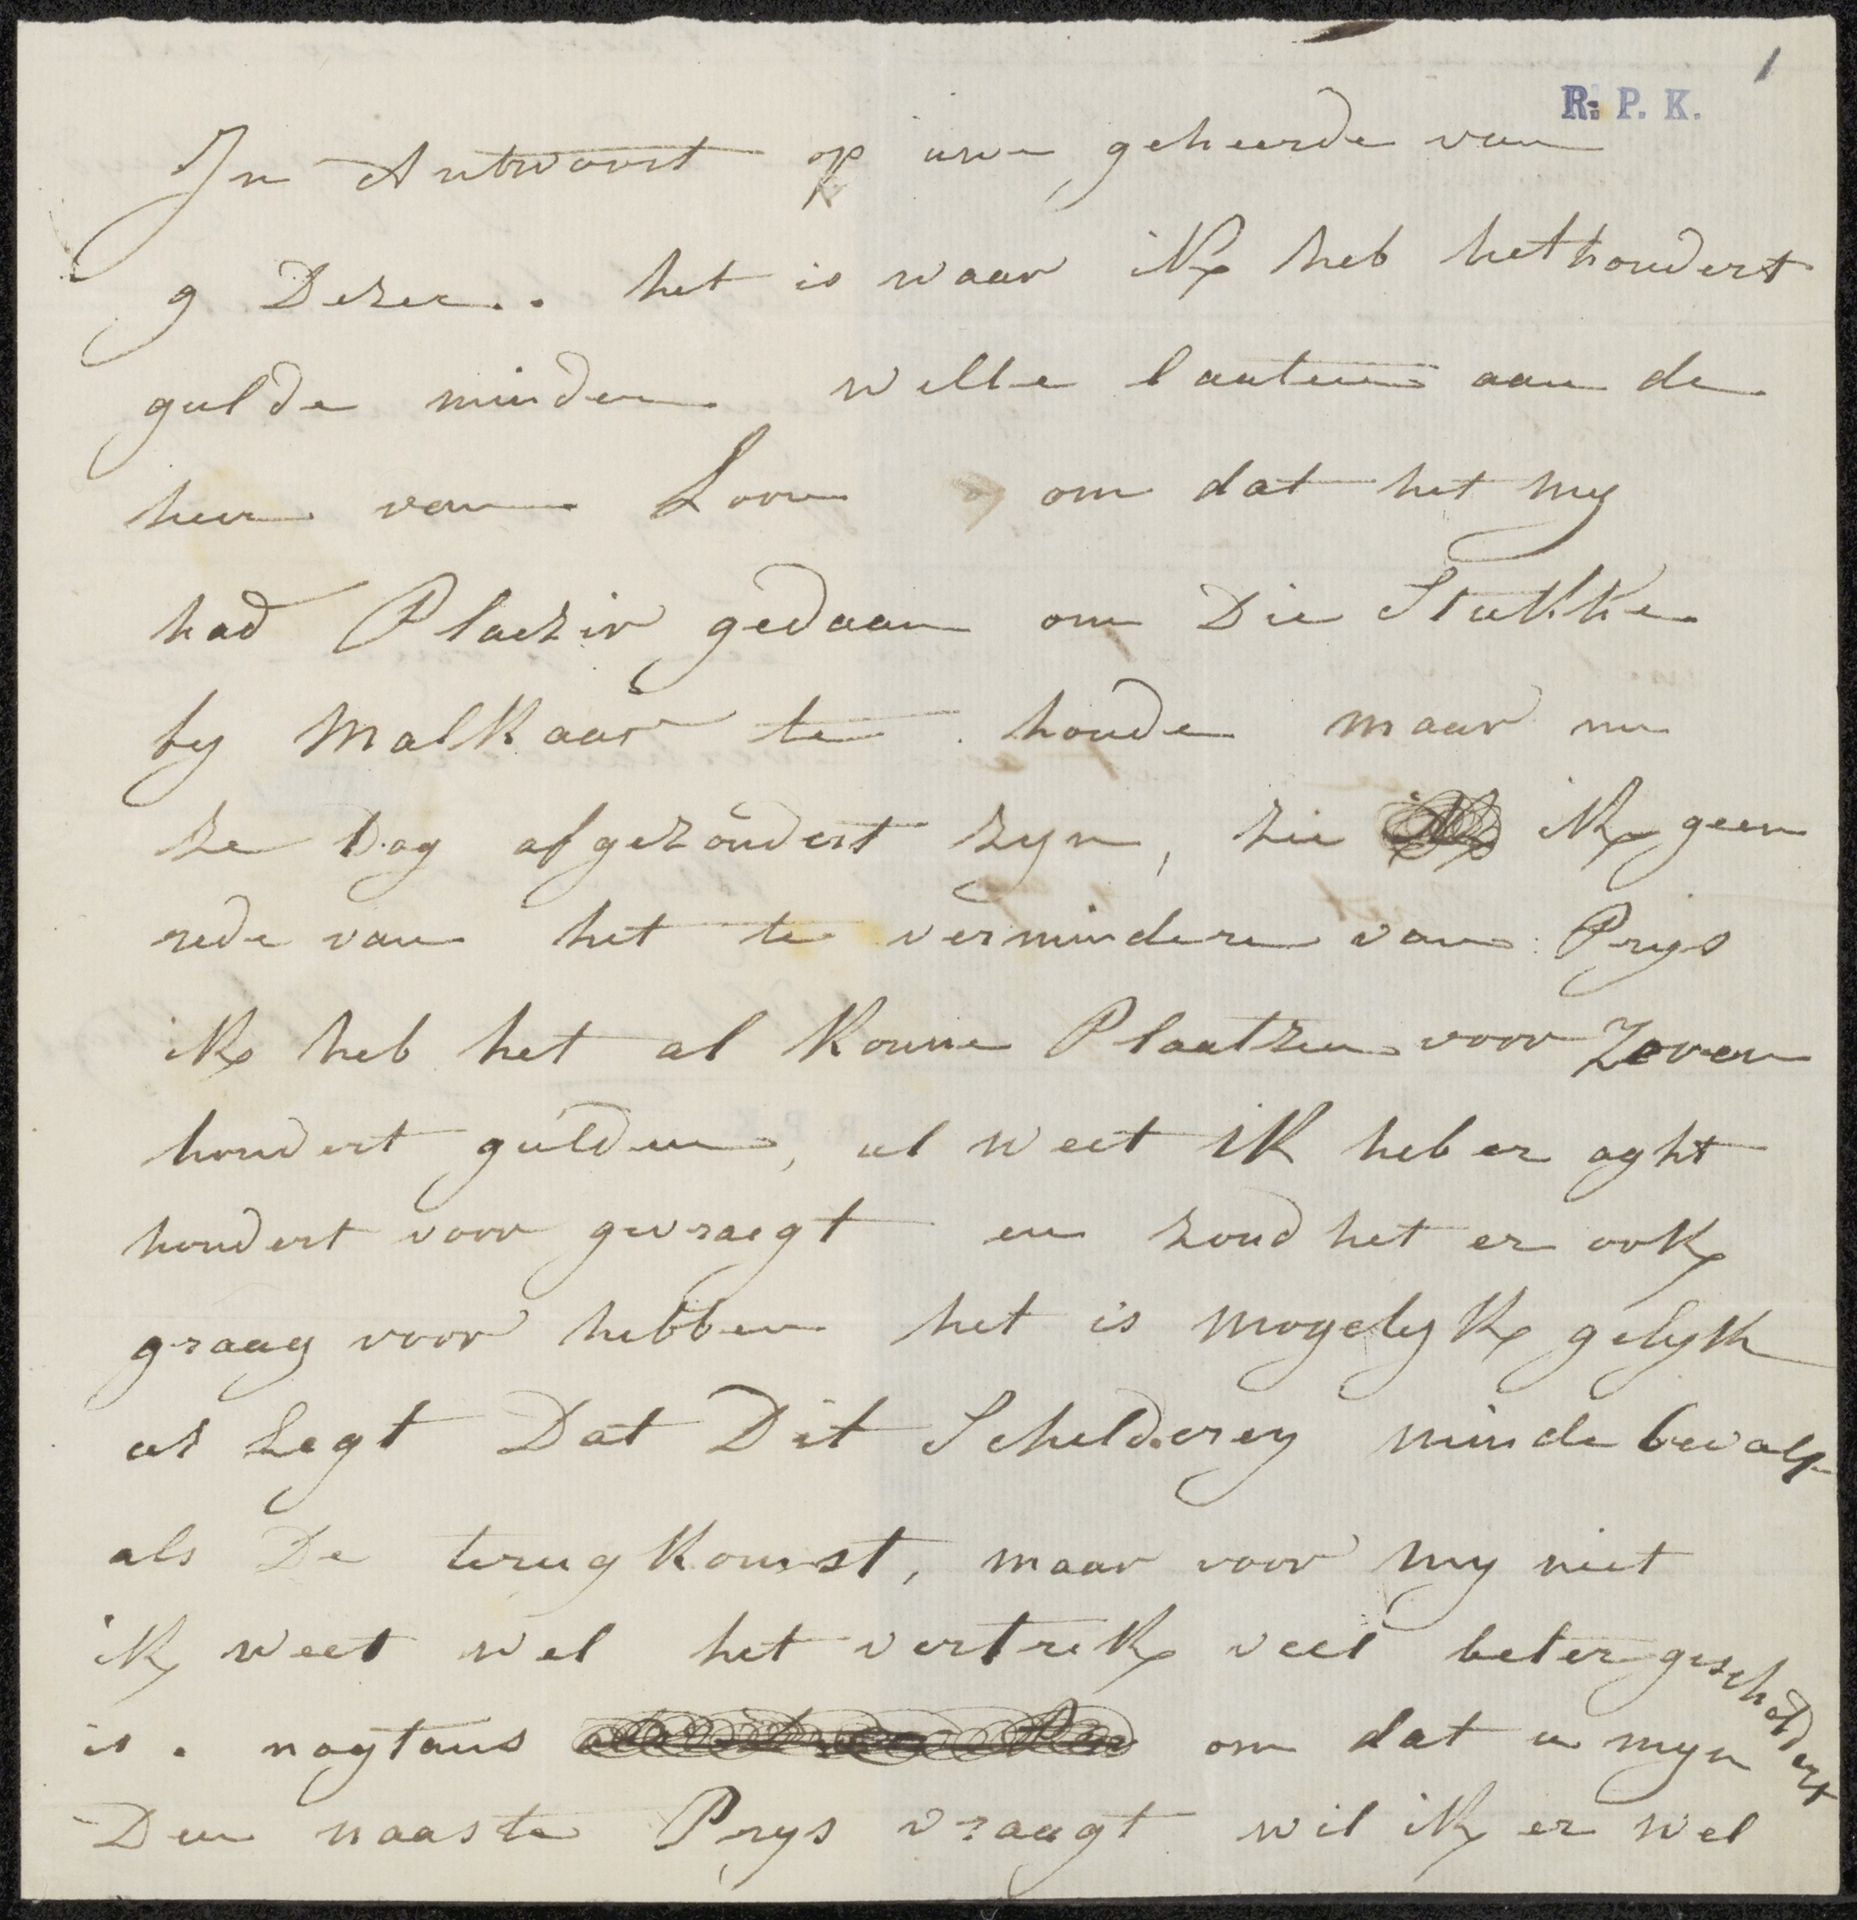 1
R. P. K.
In Antwoort op uwe geheerde van
9 Dezer. het is waar ik heb het hondert
gulde minder wille laaten aan de
heer van Loon om dat het my
had Plaezir gedaan om Die Stukke
by malkaar te houde maar nu
ze Dog afgezondert zyn, zie ik geen
rede van het te verminderen van Prys
ik heb het al konne Plaatzen voor Zeven
hondert gulden, al weet ik heb er aght
hondert voor gevraegt en zoud het er ook
graag voor hebben het is mogelyk gelyk
als Zegt Dat Dit Schelderey minde bevalt
als De terugkomst, maar voor my niet
ik weet wel het vertrek veel beter gescheldert
is. nogtans om dat u myn
Den naaste Prys vraagt wil ik er wel